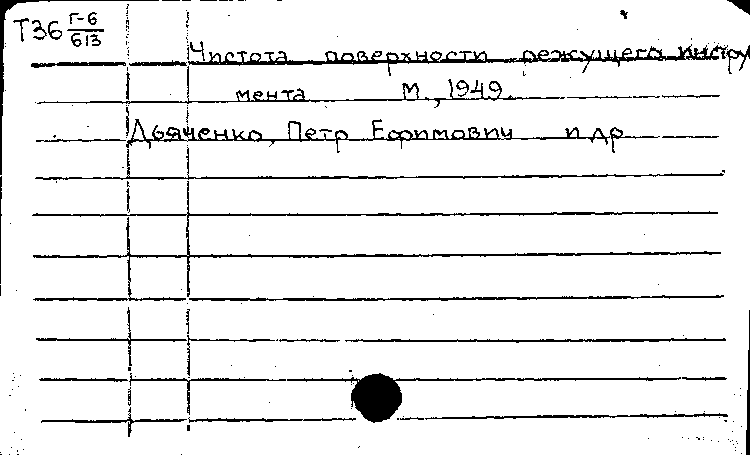 Т36 Г-6/613
Чистота поверхности режущего инстру
мента М., 1949.
Дьяченко, Петр Ефимович и др